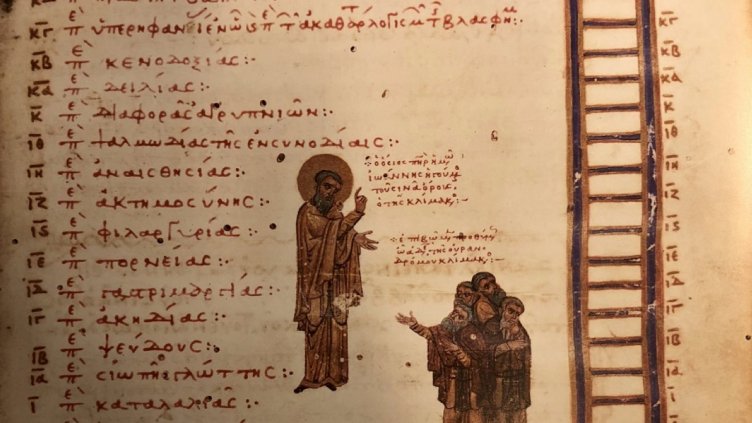 κγ ἐπ ὑπερηφανί ἐν ὧ ς π τ ἀκαθάρ λογισμ τ βλασφημ
κβ ἐπ κενοδοξίας:
κα ἐπ δειλίας:
κ ἐπ διαφορᾶς ἀγρυπνιῶν:
ιθ ἐπ ψαλμωδίας τῆς ἐν συνοδίαις:
ιη ἐπ ἀναισθησίας:
ιζ ἐπ ἀκτημοσύνης:
ις ἐπ φιλαργυρίας:
ιε ἐπ πορνείας:
ιδ ἐπ γαστριμαργίας:
ιγ ἐπ ἀκηδίας:
ιβ ἐπ ψεύδους:
ια ἐπ σιωπῆς γλώττης:
ι ἐπ καταλαλιᾶς:
ὁ ὅσιος πηρ ἡμῶ
ἰωάννης ἡγουμ
τοῦ σινὰ ὄρους
ὁ τῆς κλίμακ:
τῆς οὐραν
δρόμου κλίμακ:
κγ
κβ
κα
κ
ιθ
ιη
ιζ
ις
ιε
ιδ
ιγ
ιβ
ια
ι